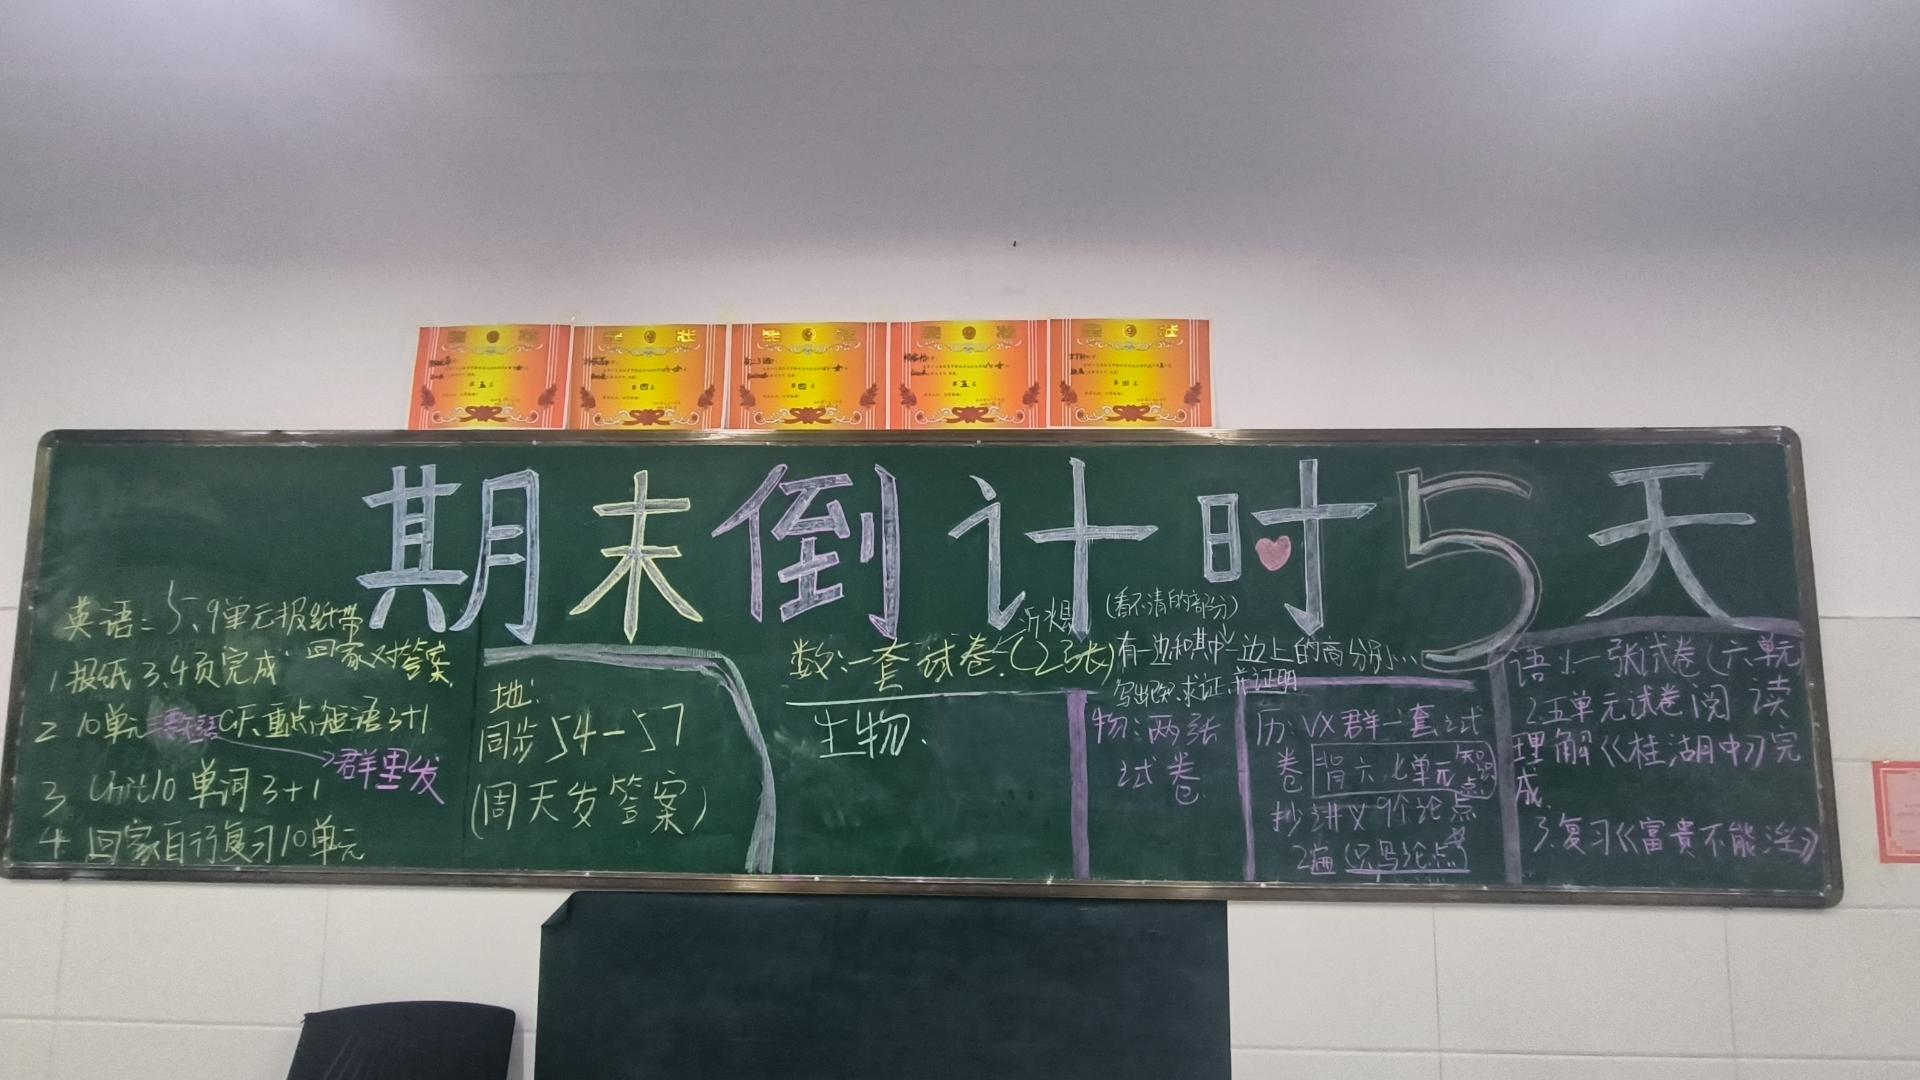 奖状
第五名
奖状
第四名
奖状
第四名
奖状
第五名
奖状
第四名
期末倒计时5天
英语: 5、9单元报纸带回家对答案
1 报纸3、4页完成
2 10单元 重点短语3+1
群里发
3 Unit10 单词3+1
4 回家自行复习10单元
地:
同步54-57
(周天发答案)
数:一套试卷(2张)
(看不清的部分)
有一边和其中一边上的高分别…
写出已知.求证,并证明
生物.
物:两张
试卷
历:VX群一套试
卷 背六、七单元知识点
抄讲义9个论点
2遍(只写论点)
语:1.一张试卷(六单元)
2.五单元试卷阅读
理解《桂湖中》完
成.
3.复习《富贵不能淫》